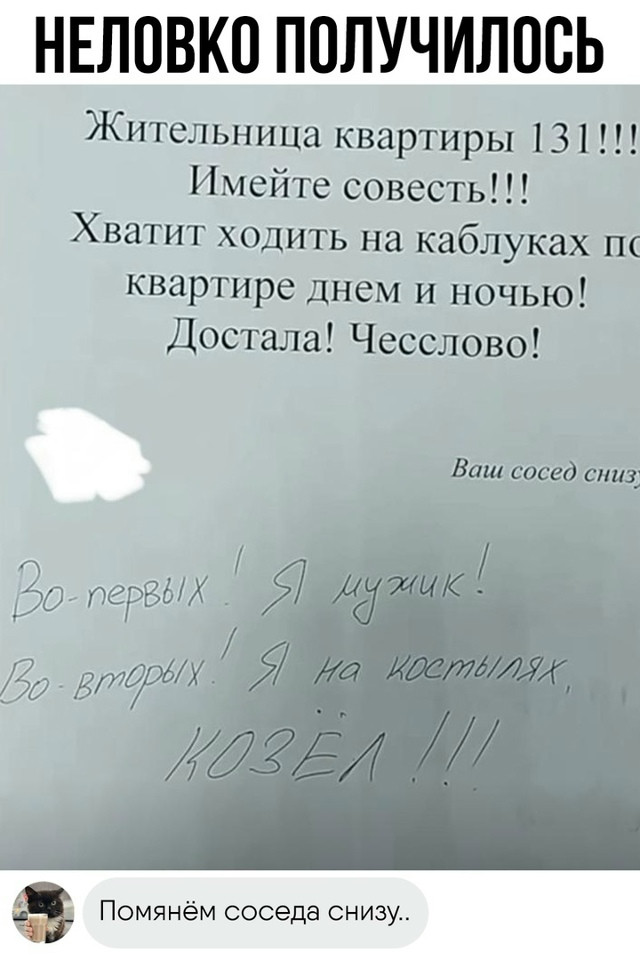 НЕЛОВКО ПОЛУЧИЛОСЬ
Жительница квартиры 131!!!
Имейте совесть!!!
Хватит ходить на каблуках по
квартире днем и ночью!
Достала! Чесслово!
Ваш сосед снизу
Во-первых! Я мужик!
Во-вторых! Я на костылях,
КОЗЁЛ!!!
Помянём соседа снизу..